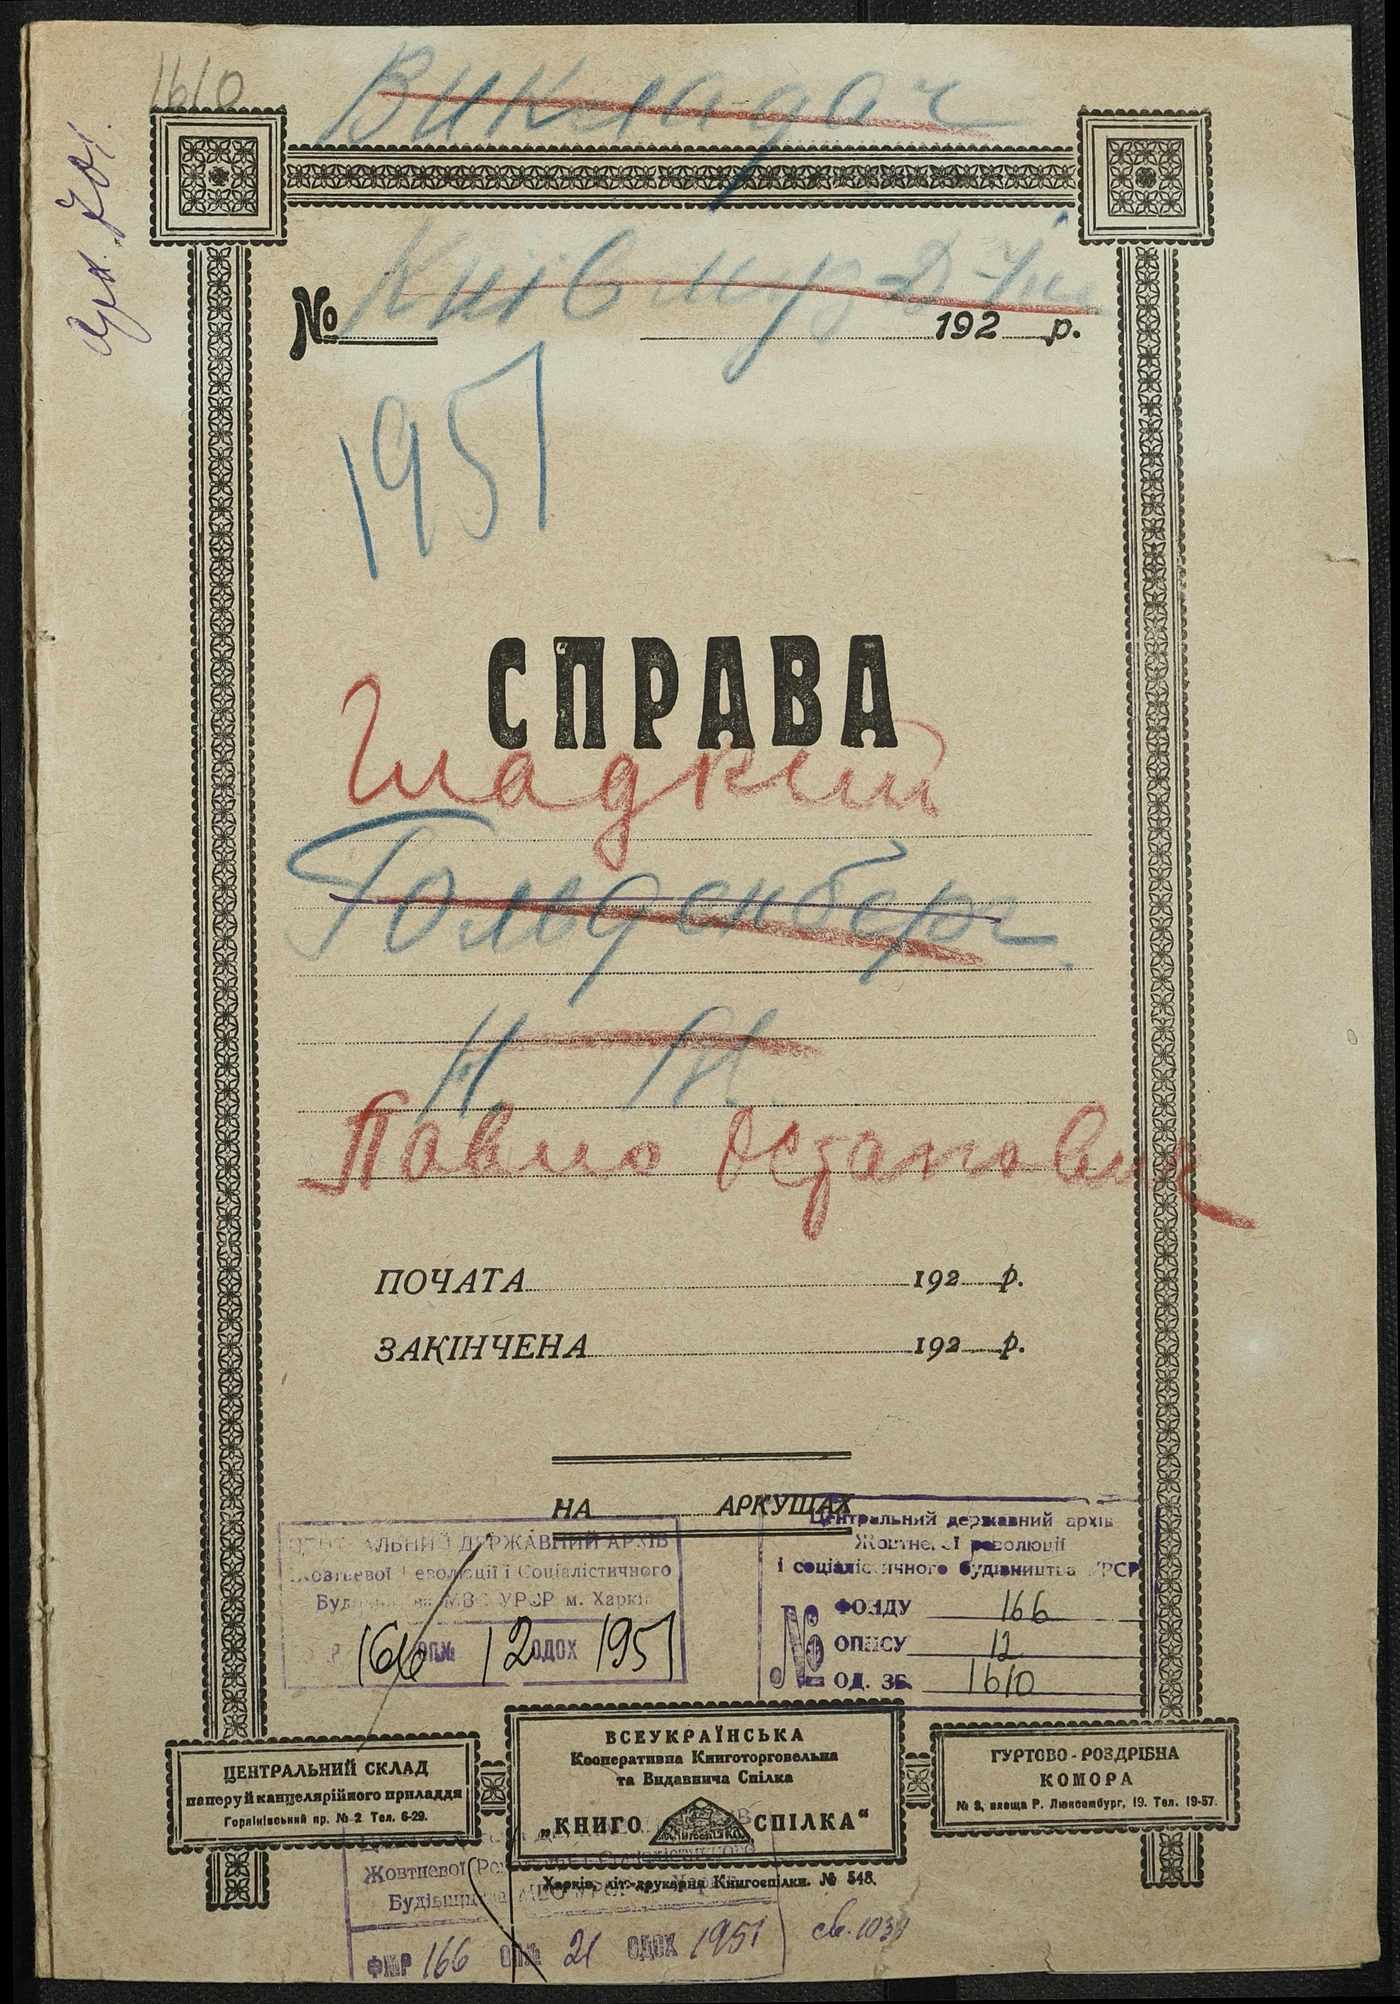 1610
Викладач
арк. 701.
Київ муз-д-
№ 192 р.
1951
СПРАВА
Гладкий
Гольденберг
Н. М.
Павло Остапович
ПОЧАТА 192 р.
ЗАКІНЧЕНА 192 р.
НА АРКУШАХ
ЦЕНТРАЛЬНИЙ ДЕРЖАВНИЙ АРХІВ
Жовтневої Революції і Соціалістичного
Будівництва МВС УРСР м. Харків
166 ОП№ 12 ОДОХ 1951
Центральний державний архів
Жовтневої революції
і соціалістичного будівництва УРСР
№ ФОНДУ 166
ОПИСУ 12
ОД. ЗБ. 1610
ЦЕНТРАЛЬНИЙ СКЛАД
паперу й канцелярійного приладдя
Горяінівський пр. № 2 Тел. 6-29.
ВСЕУКРАЇНСЬКА
Кооперативна Книготорговельна
та Видавнича Спілка
„КНИГО СПІЛКА“
ГУРТОВО-РОЗДРІБНА
КОМОРА
№ 8, площа Р. Люксембург, 19. Тел. 19-57.
Харків, літ.-друкарня Книгоспілки. № 548.
Жовтневої
Будівництва МВС УРСР
ФМР 166 ОП№ 21 ОДОХ 1951
св. 1034